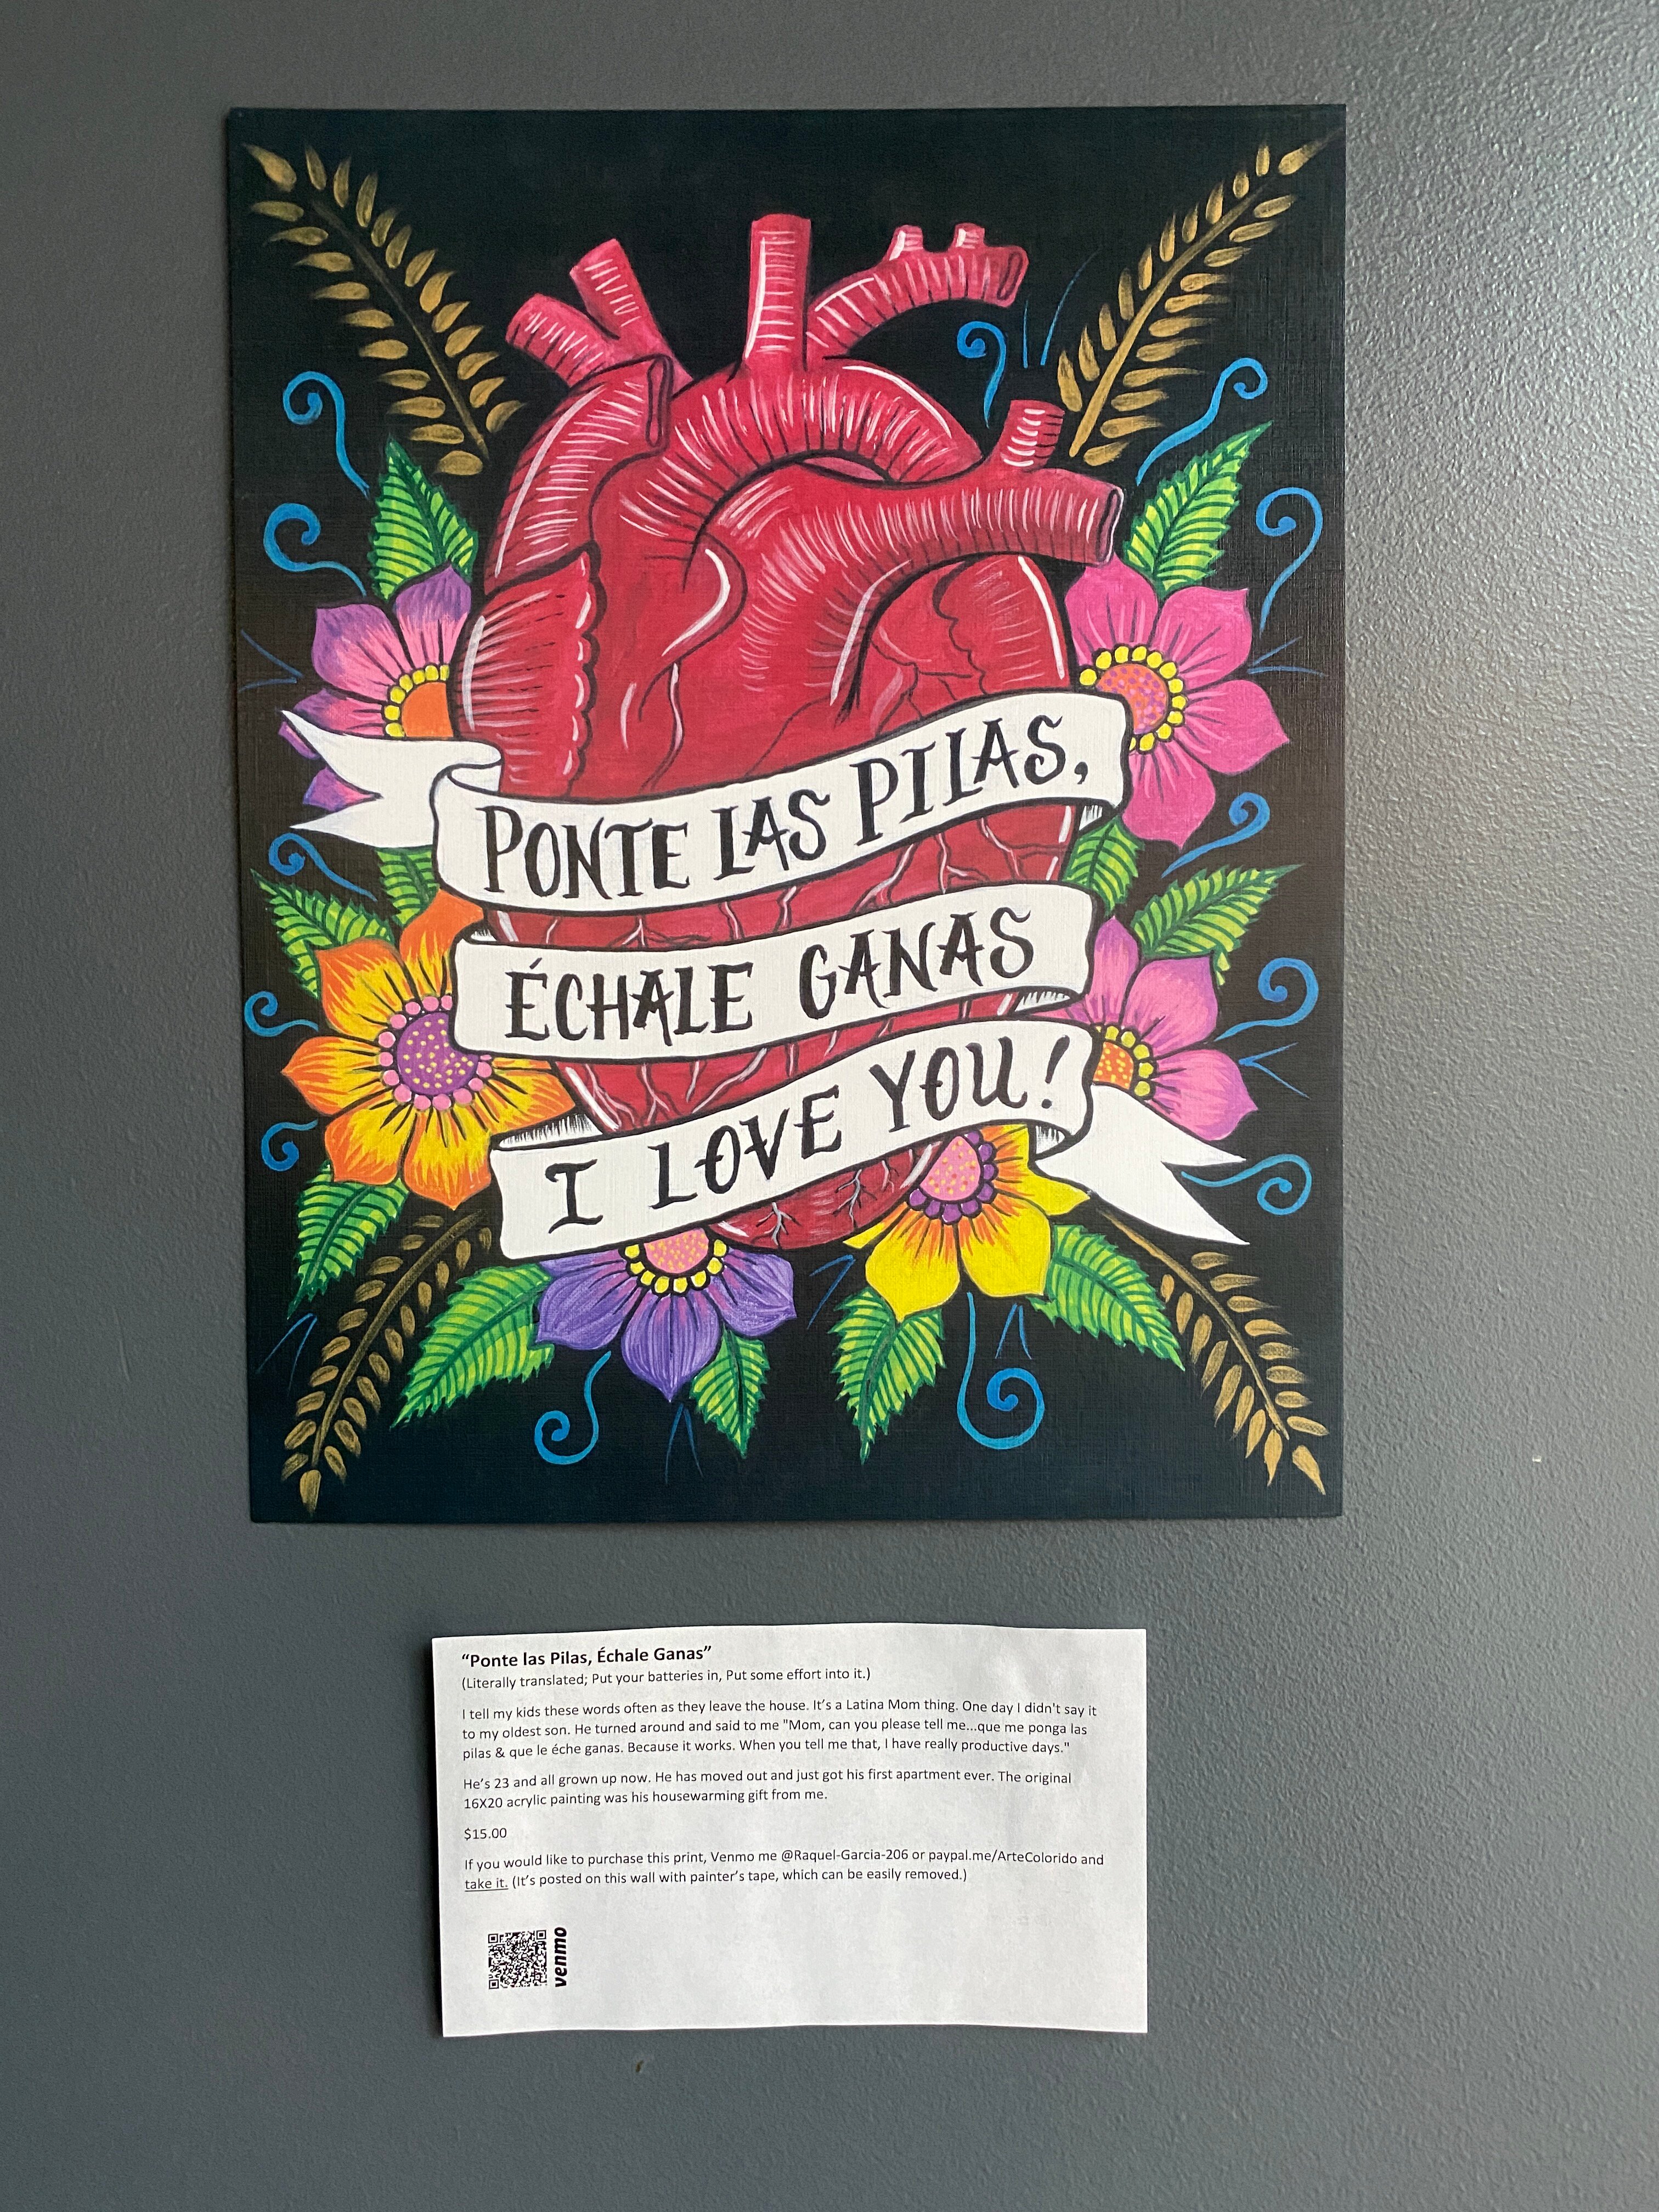 PONTE LAS PILAS,
ÉCHALE GANAS
I LOVE YOU!
“Ponte las Pilas, Échale Ganas”
(Literally translated; Put your batteries in, Put some effort into it.)
I tell my kids these words often as they leave the house. It’s a Latina Mom thing. One day I didn't say it
to my oldest son. He turned around and said to me "Mom, can you please tell me...que me ponga las
pilas & que le éche ganas. Because it works. When you tell me that, I have really productive days."
He’s 23 and all grown up now. He has moved out and just got his first apartment ever. The original
16X20 acrylic painting was his housewarming gift from me.
$15.00
If you would like to purchase this print, Venmo me @Raquel-Garcia-206 or paypal.me/ArteColorido and
take it. (It’s posted on this wall with painter’s tape, which can be easily removed.)
venmo